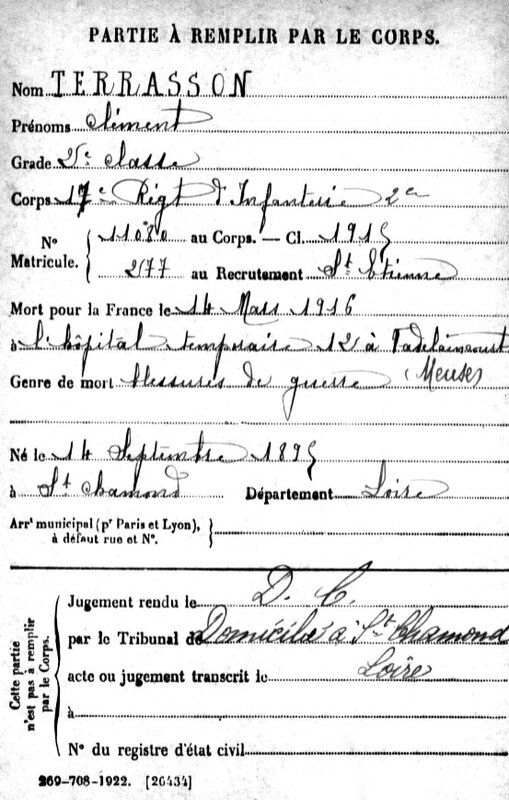 PARTIE À REMPLIR PAR LE CORPS.
Nom TERRASSON
Prénoms Clément
Grade 2e classe
Corps 17e Régt d'Infanterie 2e
N° Matricule. 11080 au Corps. — Cl. 1915
277 au Recrutement St Etienne
Mort pour la France le 14 Mars 1916
à l'hôpital temporaire 12 à Vadelaincourt
(Meuse)
Genre de mort blessures de guerre
Né le 14 Septembre 1895
à St Chamond Département Loire
Arrt municipal (pr Paris et Lyon),
à défaut rue et N°.
Cette partie n'est pas à remplir par le Corps.
Jugement rendu le D. C.
par le Tribunal de Domicilié à St Chamond
acte ou jugement transcrit le Loire
à
N° du registre d'état civil
269-708-1922. [26434]